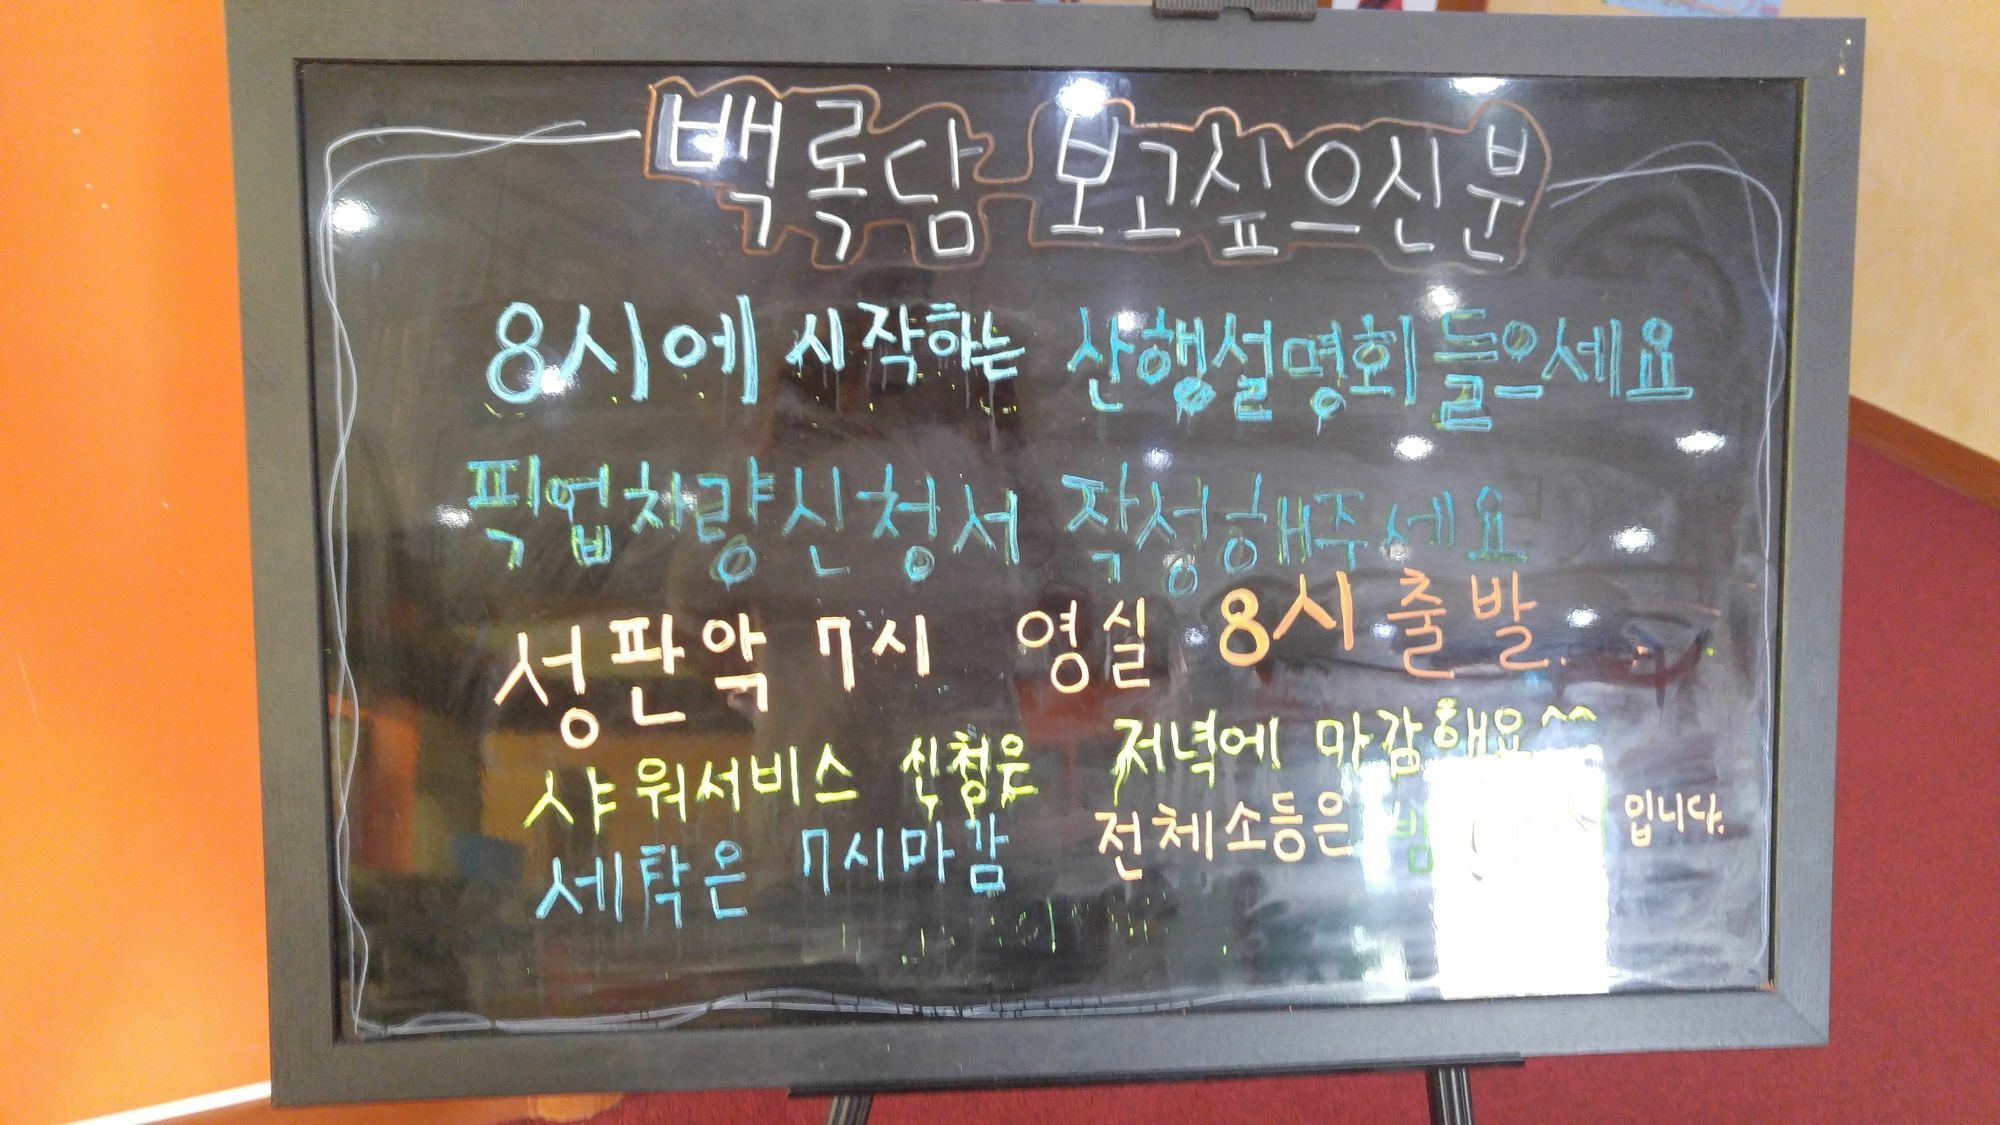 백록담 보고싶으신분
8시에 시작하는 산행설명회 들으세요
픽업차량신청서 작성해주세요
성판악 7시 영실 8시 출발
샤워서비스 신청은 저녁에 마감해요^^
세탁은 7시마감 전체소등은 밤 입니다.